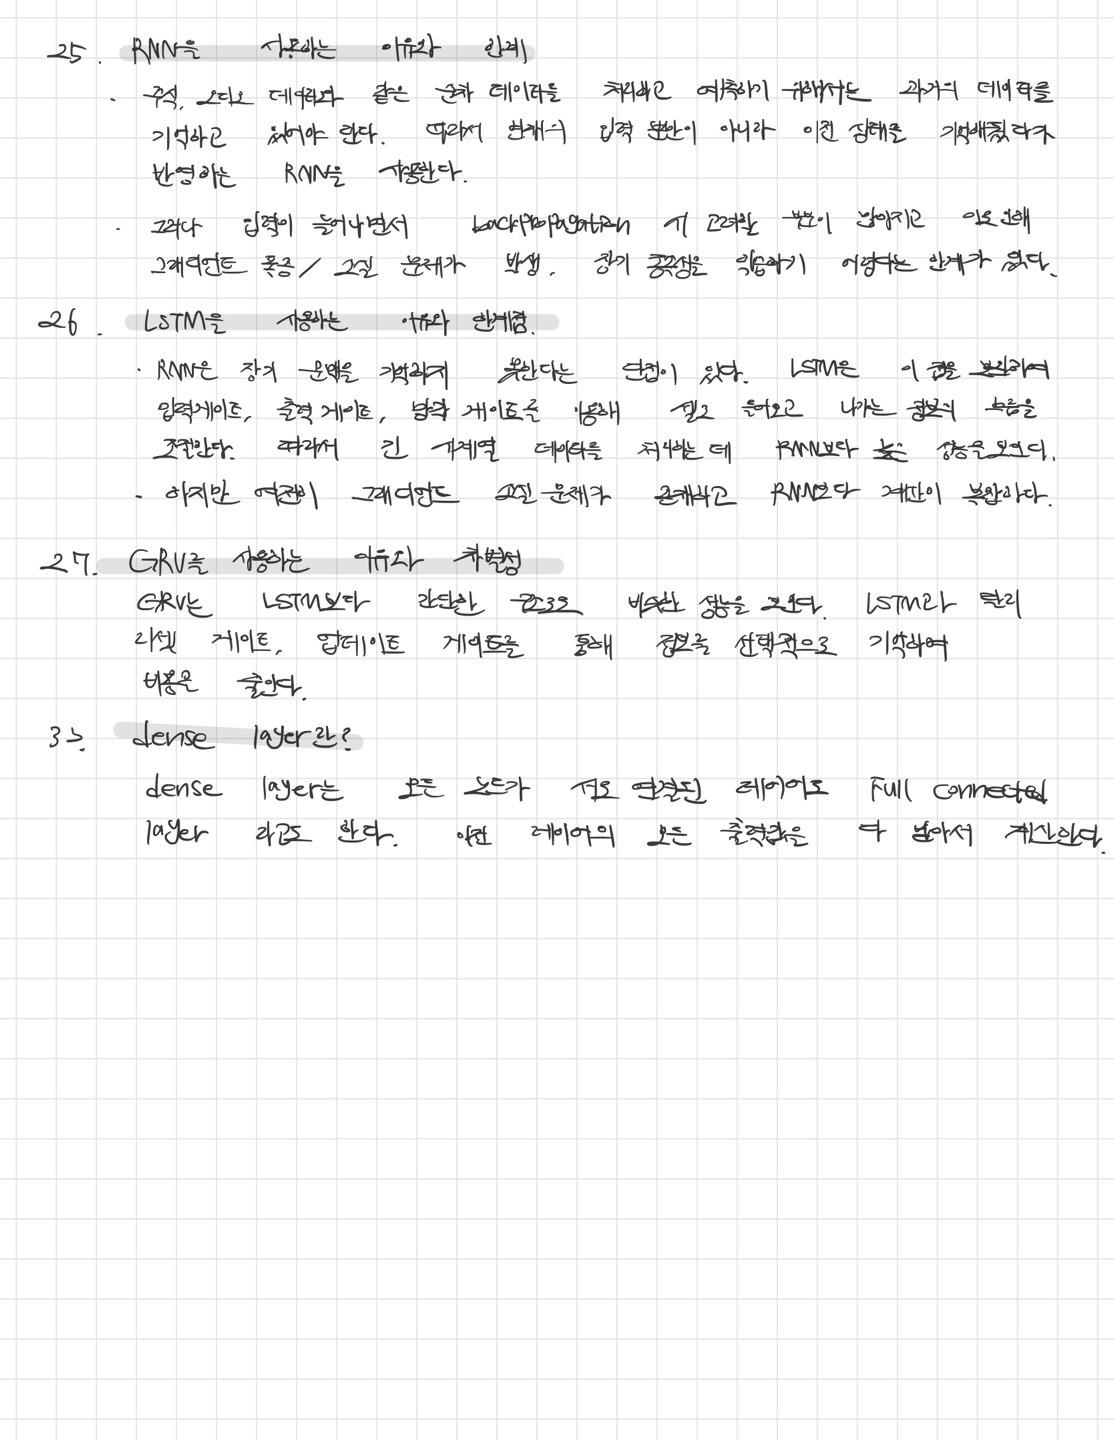 25. RNN을 사용하는 이유와 한계
· 주식, 오디오 데이터와 같은 순차 데이터를 처리하고 예측하기 위해서는 과거의 데이터를
기억하고 있어야 한다. 따라서 현재의 입력 뿐만이 아니라 이전 상태를 기억해뒀다가
반영하는 RNN을 사용한다.
· 그러나 입력이 늘어나면서 backpropagation 시 고려할 부분이 많아지고 이로 인해
그래디언트 폭증 / 소실 문제가 발생. 장기 종속성을 학습하기 어렵다는 한계가 있다.
26. LSTM을 사용하는 이유와 한계점.
· RNN은 장기 문맥을 기억하지 못한다는 단점이 있다. LSTM은 이 점을 보완하여
입력게이트, 출력 게이트, 망각 게이트를 이용해 들어오고 나가는 정보의 흐름을
조절한다. 따라서 긴 시계열 데이터를 처리하는 데 RNN보다 높은 성능을 보인다.
· 하지만 여전히 그래디언트 소실 문제가 존재하고 RNN보다 계산이 복잡하다.
27. GRU를 사용하는 이유와 차별성
GRU는 LSTM보다 간단한 구조로 비슷한 성능을 보인다. LSTM과 달리
리셋 게이트, 업데이트 게이트를 통해 정보를 선택적으로 기억하여
비용을 줄인다.
dense layer란?
dense layer는 모든 노드가 서로 연결된 레이어로 Full connected
layer 라고도 한다. 이전 레이어의 모든 출력값을 다 받아서 계산한다.